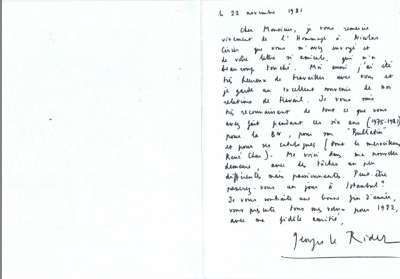 le 22 novembre 1981
Cher Monsieur, je vous remercie
vivement de l'Hommage à Nicolas
que vous m'avez envoyé et
de votre lettre si amicale, qui m'a
beaucoup touché. Moi aussi j'ai été
très heureux de travailler avec vous et
je garde un excellent souvenir de nos
relations de travail. Je vous suis
très reconnaissant de tout ce que vous
avez fait pendant ces six ans (1975-1981)
pour la BN, pour son "Bulletin"
et pour ses catalogues (dont le merveilleux
René Char). Me voici dans une nouvelle
demeure avec des tâches un peu
différentes mais passionnantes. Peut-être
passerez-vous un jour à Istanbul?
Je vous souhaite une bonne fin d'année,
vous présente tous mes vœux pour 1982,
avec ma fidèle amitié,
Georges Le Rider